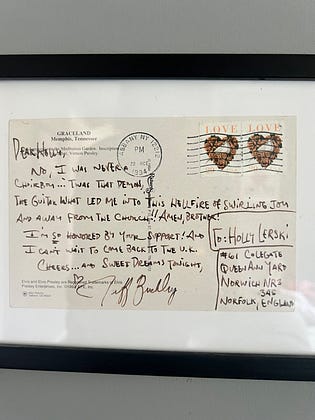 GRACELAND
Memphis, Tennessee
Meditation Garden. Inscription
Vernon Presley
ALBANY NY
PM
22 OCT
1994
LOVE LOVE
DEAR HOLLY,
NO, I WAS NEVER A
CHOIRBOY... 'TWAS THAT DEMON,
THE GUITAR WHAT LED ME INTO THIS HELLFIRE OF SWIRLING JOY
AND AWAY FROM THE CHURCH!! AMEN, BROTHER!
I'M SO HONORED BY YOUR SUPPORT! AND
I CAN'T WAIT TO COME BACK TO THE U.K.
CHEERS... AND SWEET DREAMS TONIGHT,
Jeff Buckley
TO: HOLLY LERSKI
#61 COLEGATE
QUEEN ANN YARD
NORWICH NR3
NORFOLK, ENGLAND
Elvis and Elvis Presley are Registered Trademarks of Elvis
Presley Enterprises, Inc.